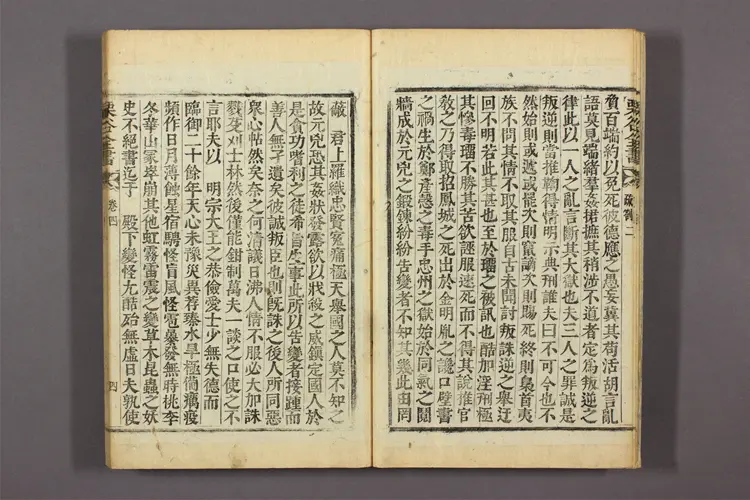 栗谷全書 疏箚二
負百端約以免死彼德應之愚妄冀其苟活胡言亂
語莫見端緖羣姦捃摭其稍涉不道者定爲叛逆之
律此以一人之亂言斷其大獄也夫三人之罪誠是
叛逆則當推鞫得情明示典刑誰夫曰不可今也不
然始則或遞或罷次則竄謫次則賜死終則梟首夷
族不問其情不取其服自古未聞討叛誅逆之擧迂
回不明若此其甚也至於瑠之被訊也酷加淫刑極
其慘毒瑠不勝其苦欲誣服速死而不得其說推官
敎之乃得取招鳳城之死出於金明胤之讒口壁書
之禍生於鄭彦慤之毒手忠州之獄始於同氣之鬩
牆成於元兇之鍛鍊紛紛告變者不知其幾此由罔
蔽 君上羅織忠賢冤痛極天擧國之人莫不知之
故元兇恐其姦狀發露欲以戕殺之威鎭定國人於
是貪功嗜利之徒希旨生事此所以告變者接踵而
善人無孑遺矣彼誠叛臣也則旣誅之後人所同惡
衆心帖然矣奈之何淸議日沸人情不服必大加誅
戮芟刈士林然後僅能鉗制萬夫一談之口使之不
言耶夫以 明宗大王之恭儉愛士少無失德而
臨御二十餘年天心未豫災異荐臻水旱極備癘疫
頻作日月薄蝕星宿騁怪盲風怪雹暴發無時桃李
冬華山冢崒崩其他虹霧雷震之變草木昆蟲之妖
史不絶書迄于 殿下變怪尤酷殆無虛日夫孰使
栗谷全書 卷四 四